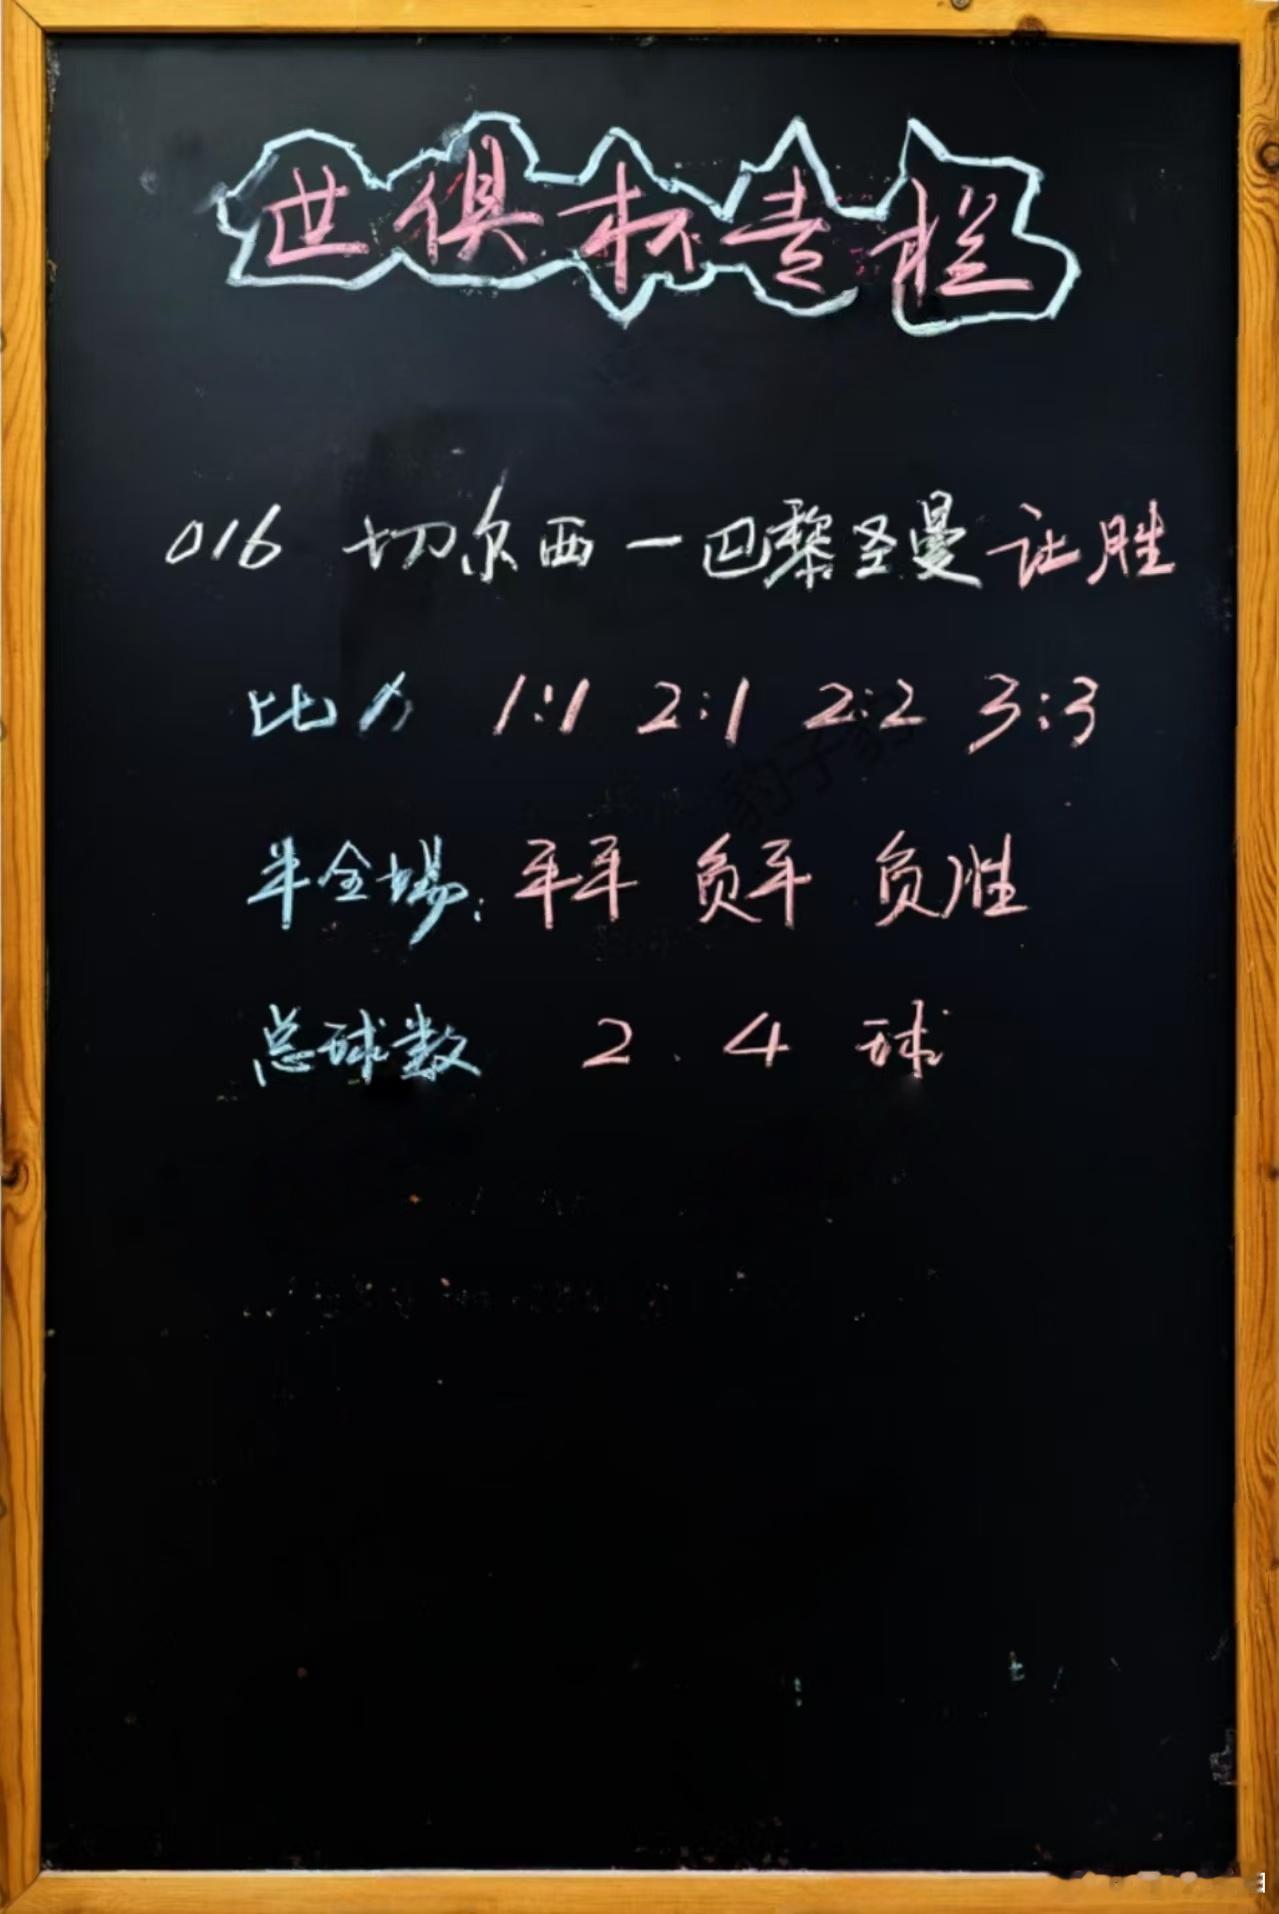 世俱杯专栏
016 切尔西-巴黎圣曼 让胜
比分 1:1 2:1 2:2 3:3
半全場: 平平 负平 负胜
总球数 2.4 球